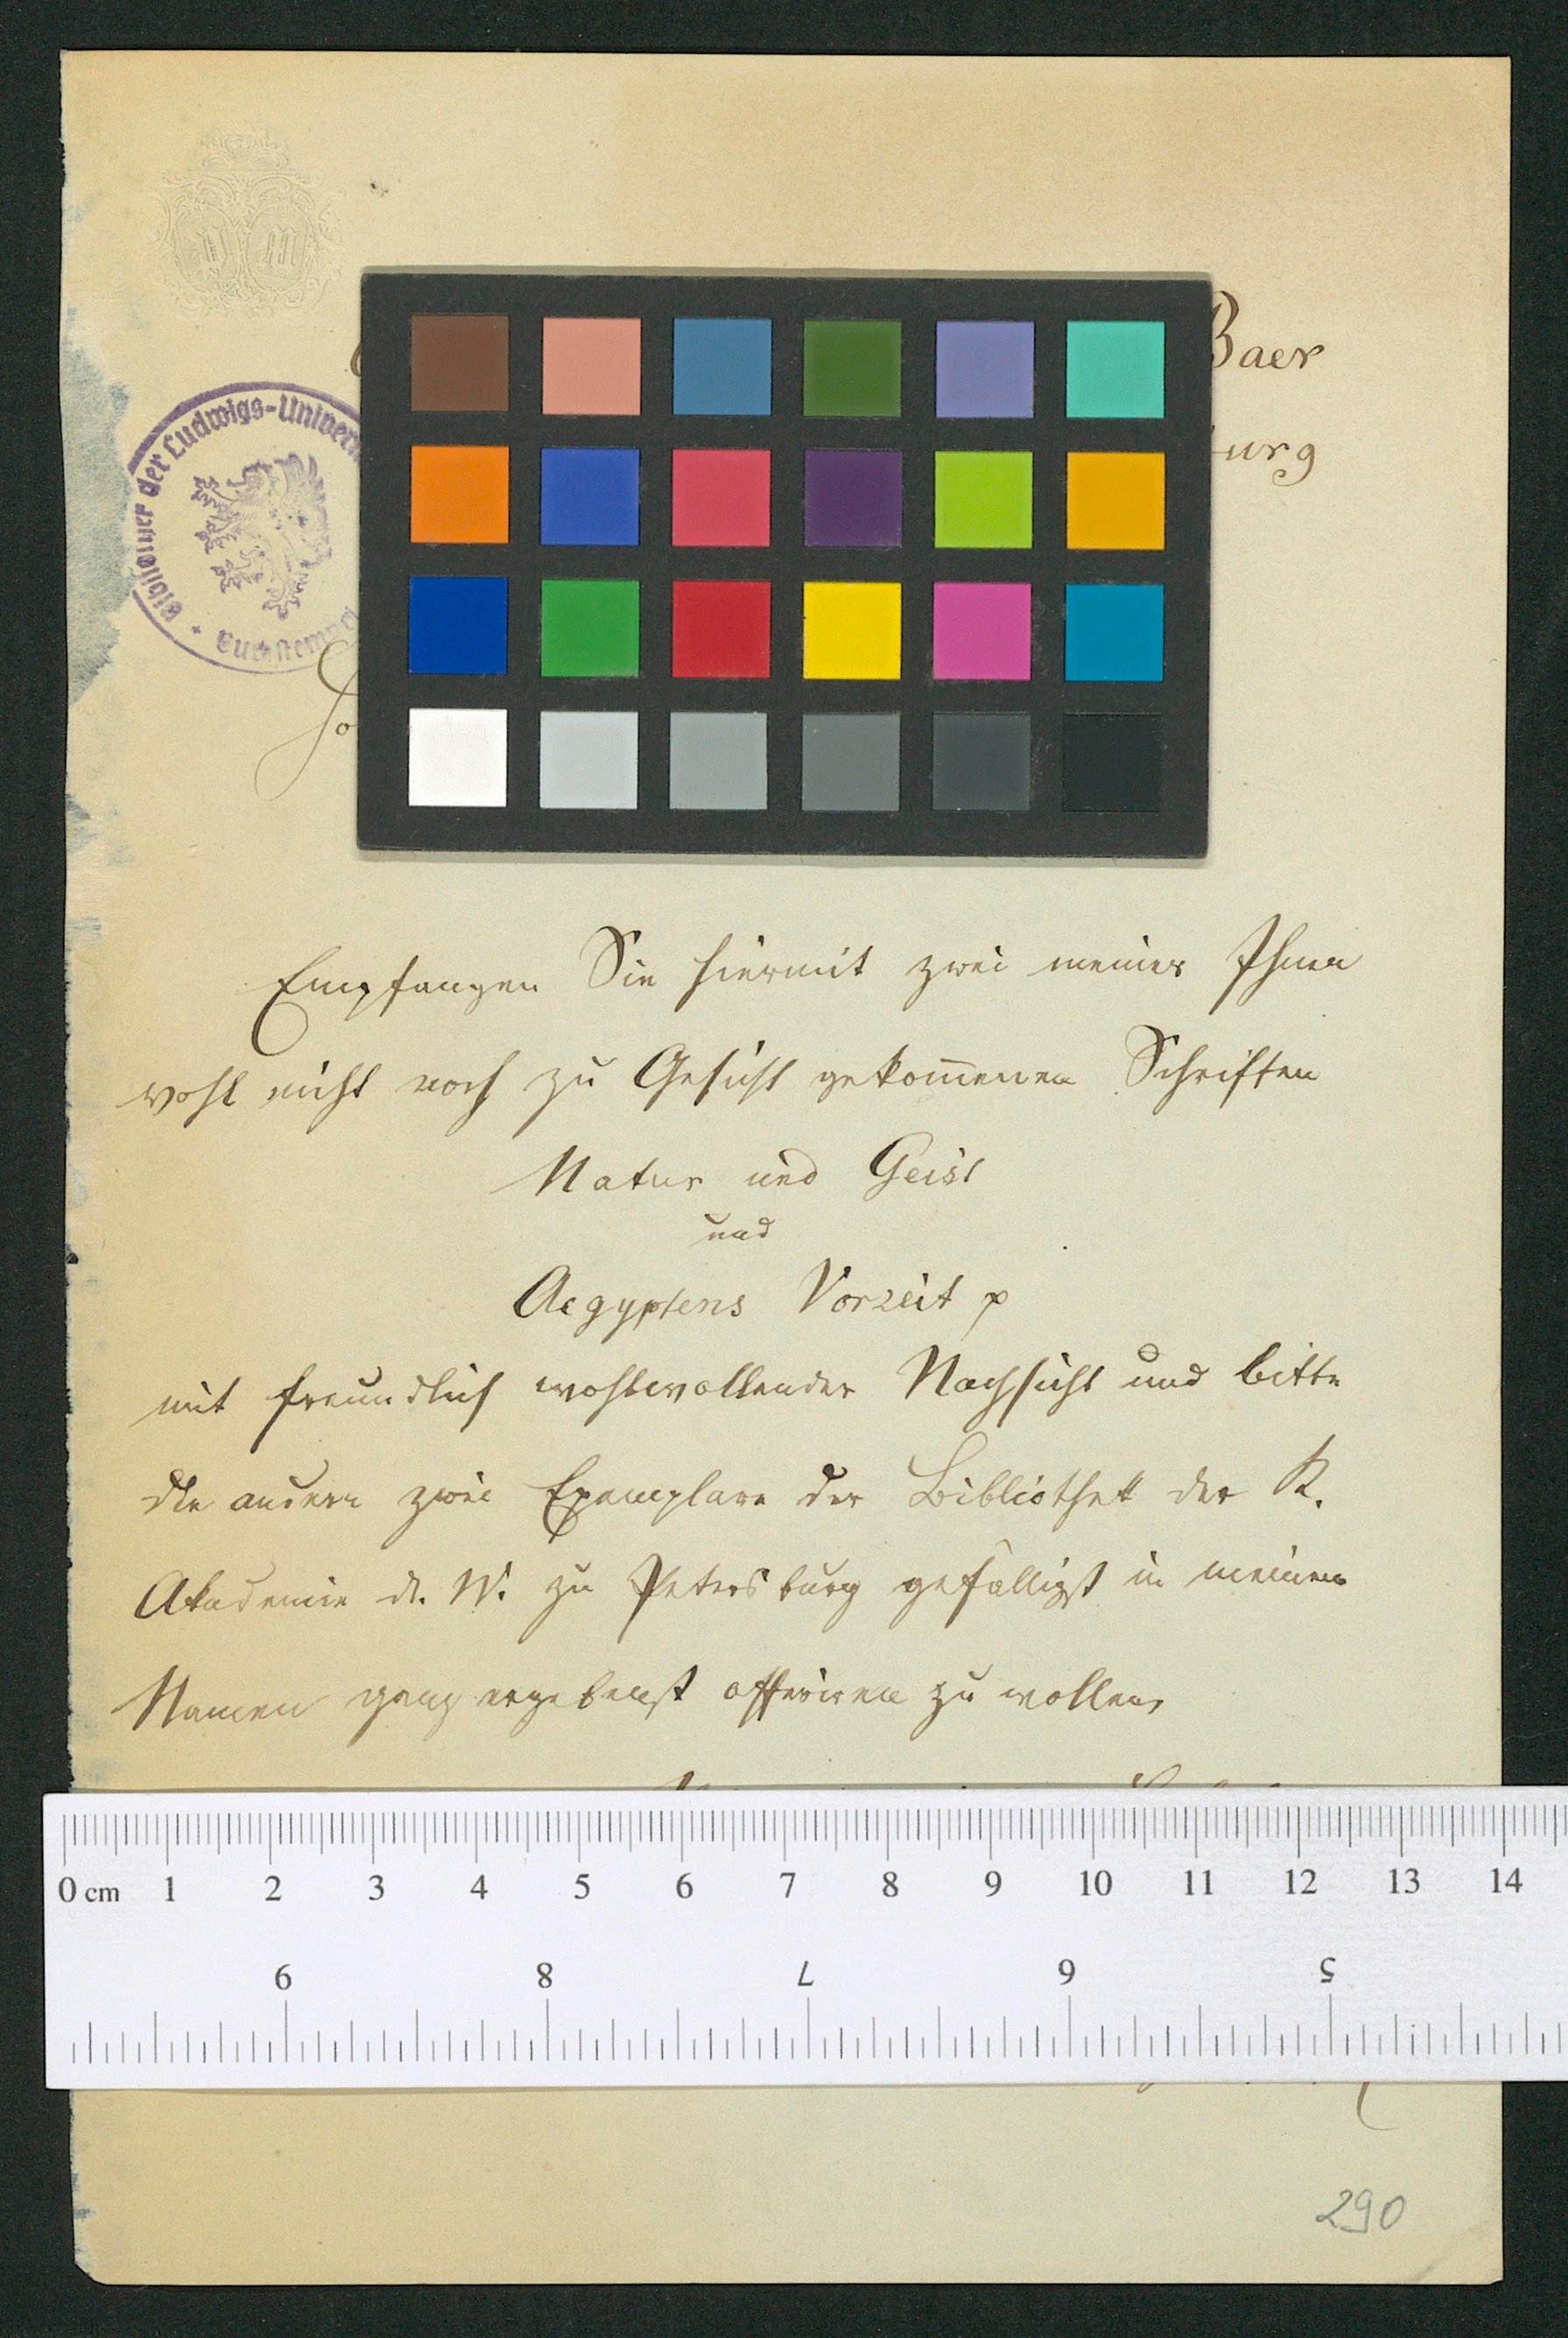 P M
Baer
Bibliothek der Ludwigs-Univer
urg
So
Empfangen Sie hiermit zwei meiner Ihnen
wohl nicht noch zu Gesicht gekom̅enen Schriften
Natur und Geist
und
Aegyptens Vorzeit p
mit freundlich wohlwollender Nachsicht und bitte
die andern zwei Exemplare der Bibliothek der K.
Akademie d. W. zu Petersburg gefälligst in meinem
Namen ganz ergebenst offeriren zu wollen,
0 cm 1 2 3 4 5 6 7 8 9 10 11 12 13 14
9 8 7 6 5
290